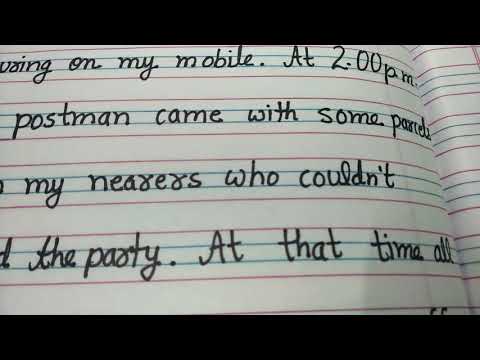 uring on my mobile. At 2.00p.m.
postman came with some parcels
o my nearers who couldn't
d the party. At that time all